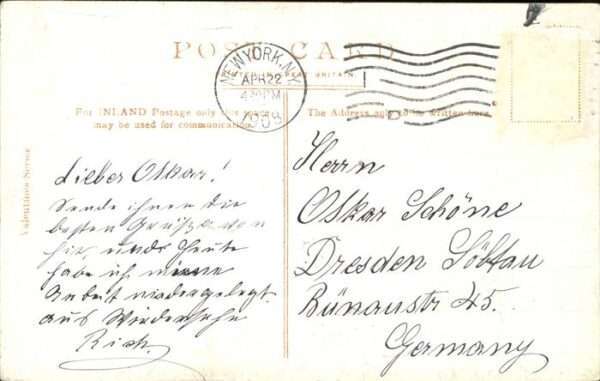 POST CARD
NEW YORK, N.Y.
APR 22
430 PM
BRITAIN.
For INLAND Postage only this
may be used for communication.
The Address only to be written here.
Valentines Series
Lieber Oskar!
Sende ihnen die
besten Grüße von
hir, und Heute
habe ich meine
Arbeit niedergelegt
aus Wiedersehn
Rich.
Herrn
Oskar Schöne
Dresden Löbtau
Bünaustr 45.
Germany